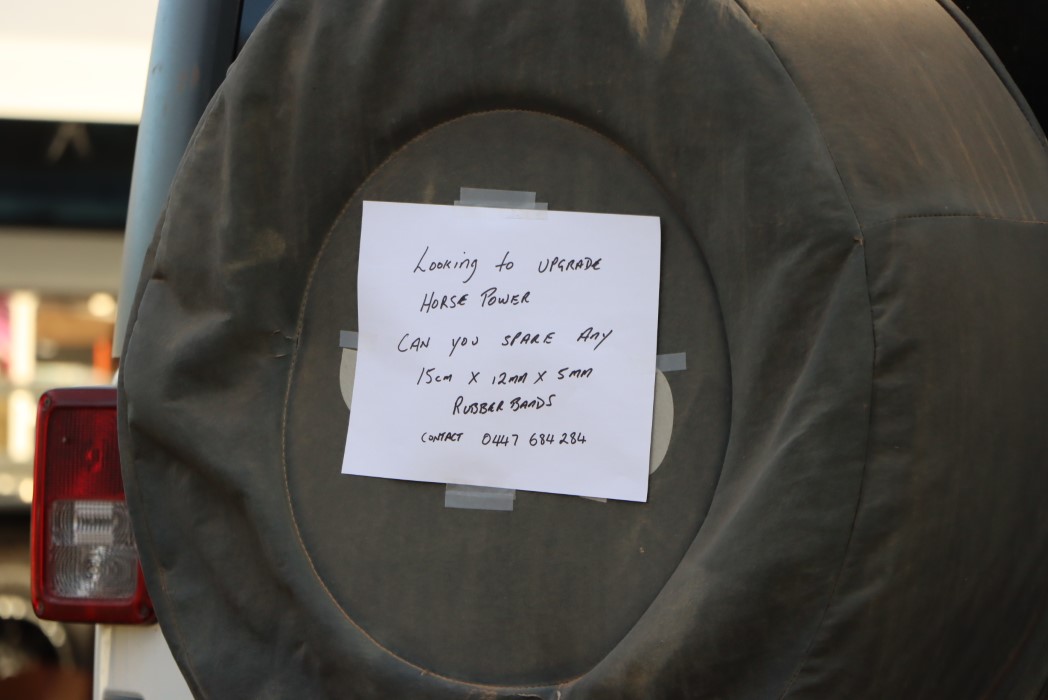 Looking to UPGRADE
HORSE POWER
CAN YOU SPARE ANY
15cm X 12mm X 5mm
RUBBER BANDS
CONTACT 0447 684 284